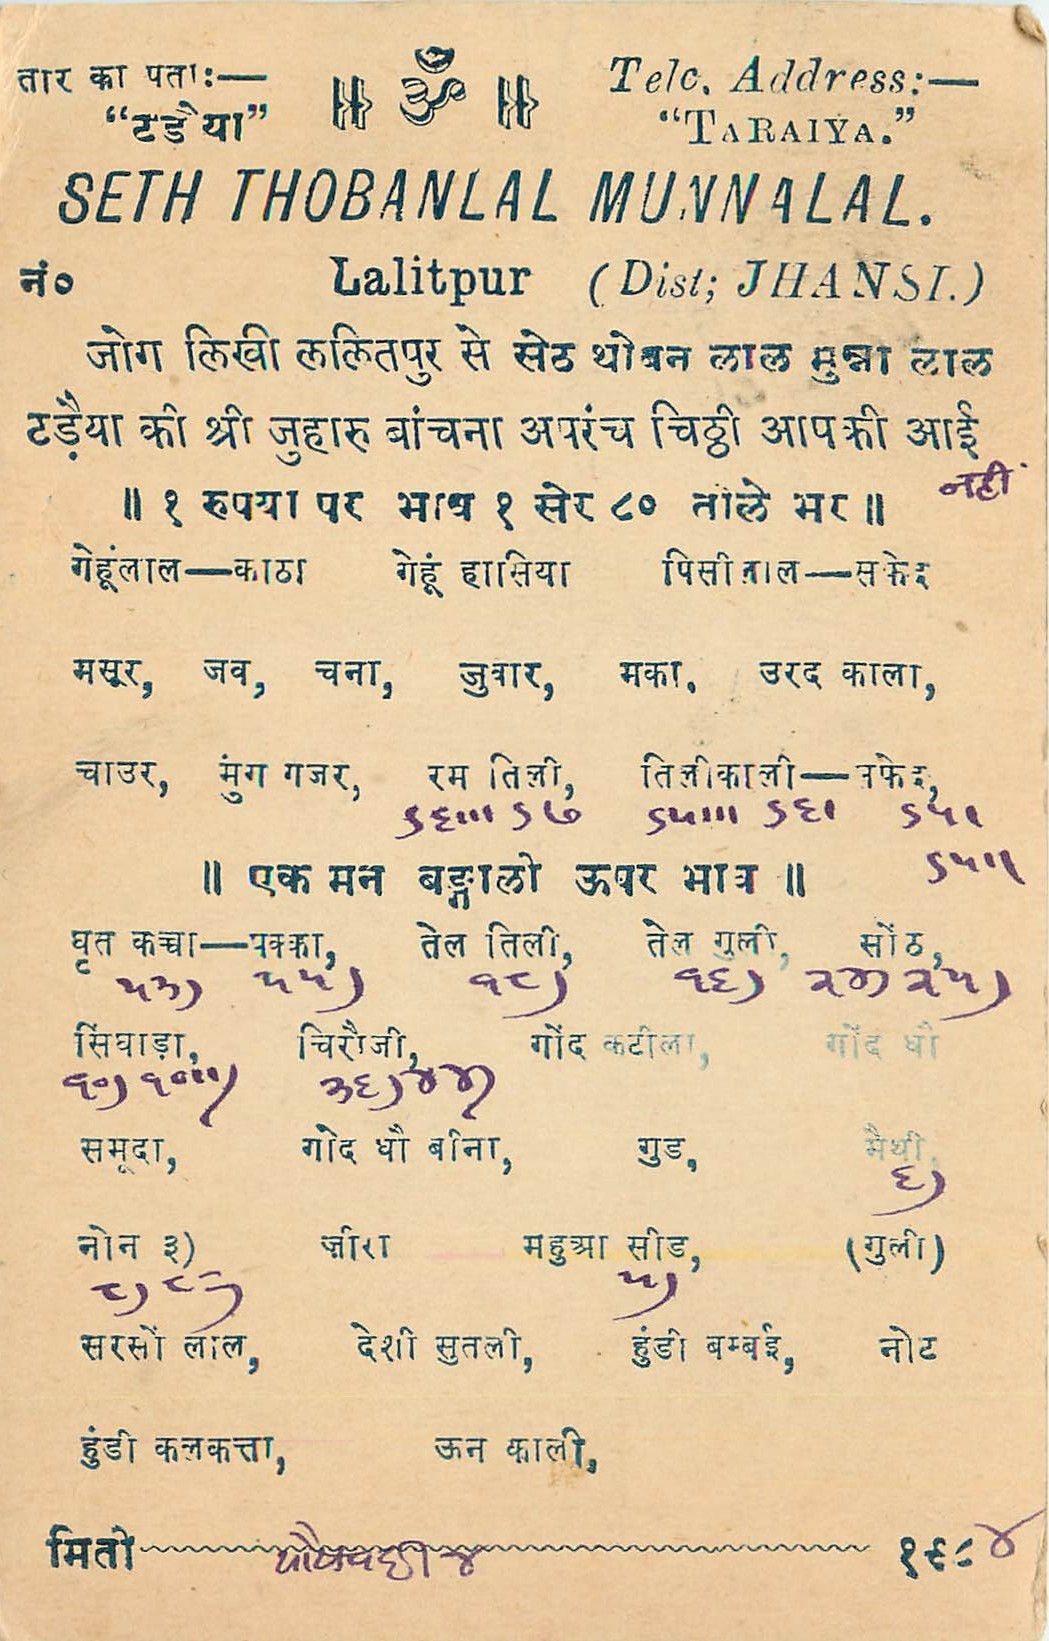 तार का पताः— ॥ ॐ ॥ Tele. Address:—
“टडैया” “TARAIYA.”
SETH THOBANLAL MUNNALAL.
नं० Lalitpur (Dist; JHANSI.)
जोग लिखी ललितपुर से सेठ थोबन लाल मुन्ना लाल
टड़ैया की श्री जुहारु बांचना अपरंच चिठ्ठी आपकी आई
नहीं
॥ १ रुपया पर भाव १ सेर ८० तोले भर ॥
गेहूंलाल—काठा गेहूं हासिया पिसीलाल—सफेद
मसूर, जव, चना, जुवार, मका. उरद काला,
चाउर, मुंग गजर, रम तिली, तिलीकाली—सफेद,
ऽ६॥। ऽ७ ऽ५॥। ऽ६। ऽ५।
ऽ५॥
॥ एक मन बङ्गाली ऊपर भाव ॥
घृत कच्चा—पक्का, तेल तिली, तेल गुली, सोंठ,
५३) ५५) १८) १६) २४) २५)
सिंघाड़ा, चिरौजी, गोंद कटीला, गोंद धौ
१०) १०॥) ३६) ४४)
समूदा, गोद धौ बीना, गुड, मैथी,
६)
नोन ३) जीरा महुआ सीड, (गुली)
८) ५)
सरसों लाल, देशी सुतली, हुंडी बम्बई, नोट
हुंडी कलकत्ता, ऊन काली,
मिती पौषवदी ४ १९८४